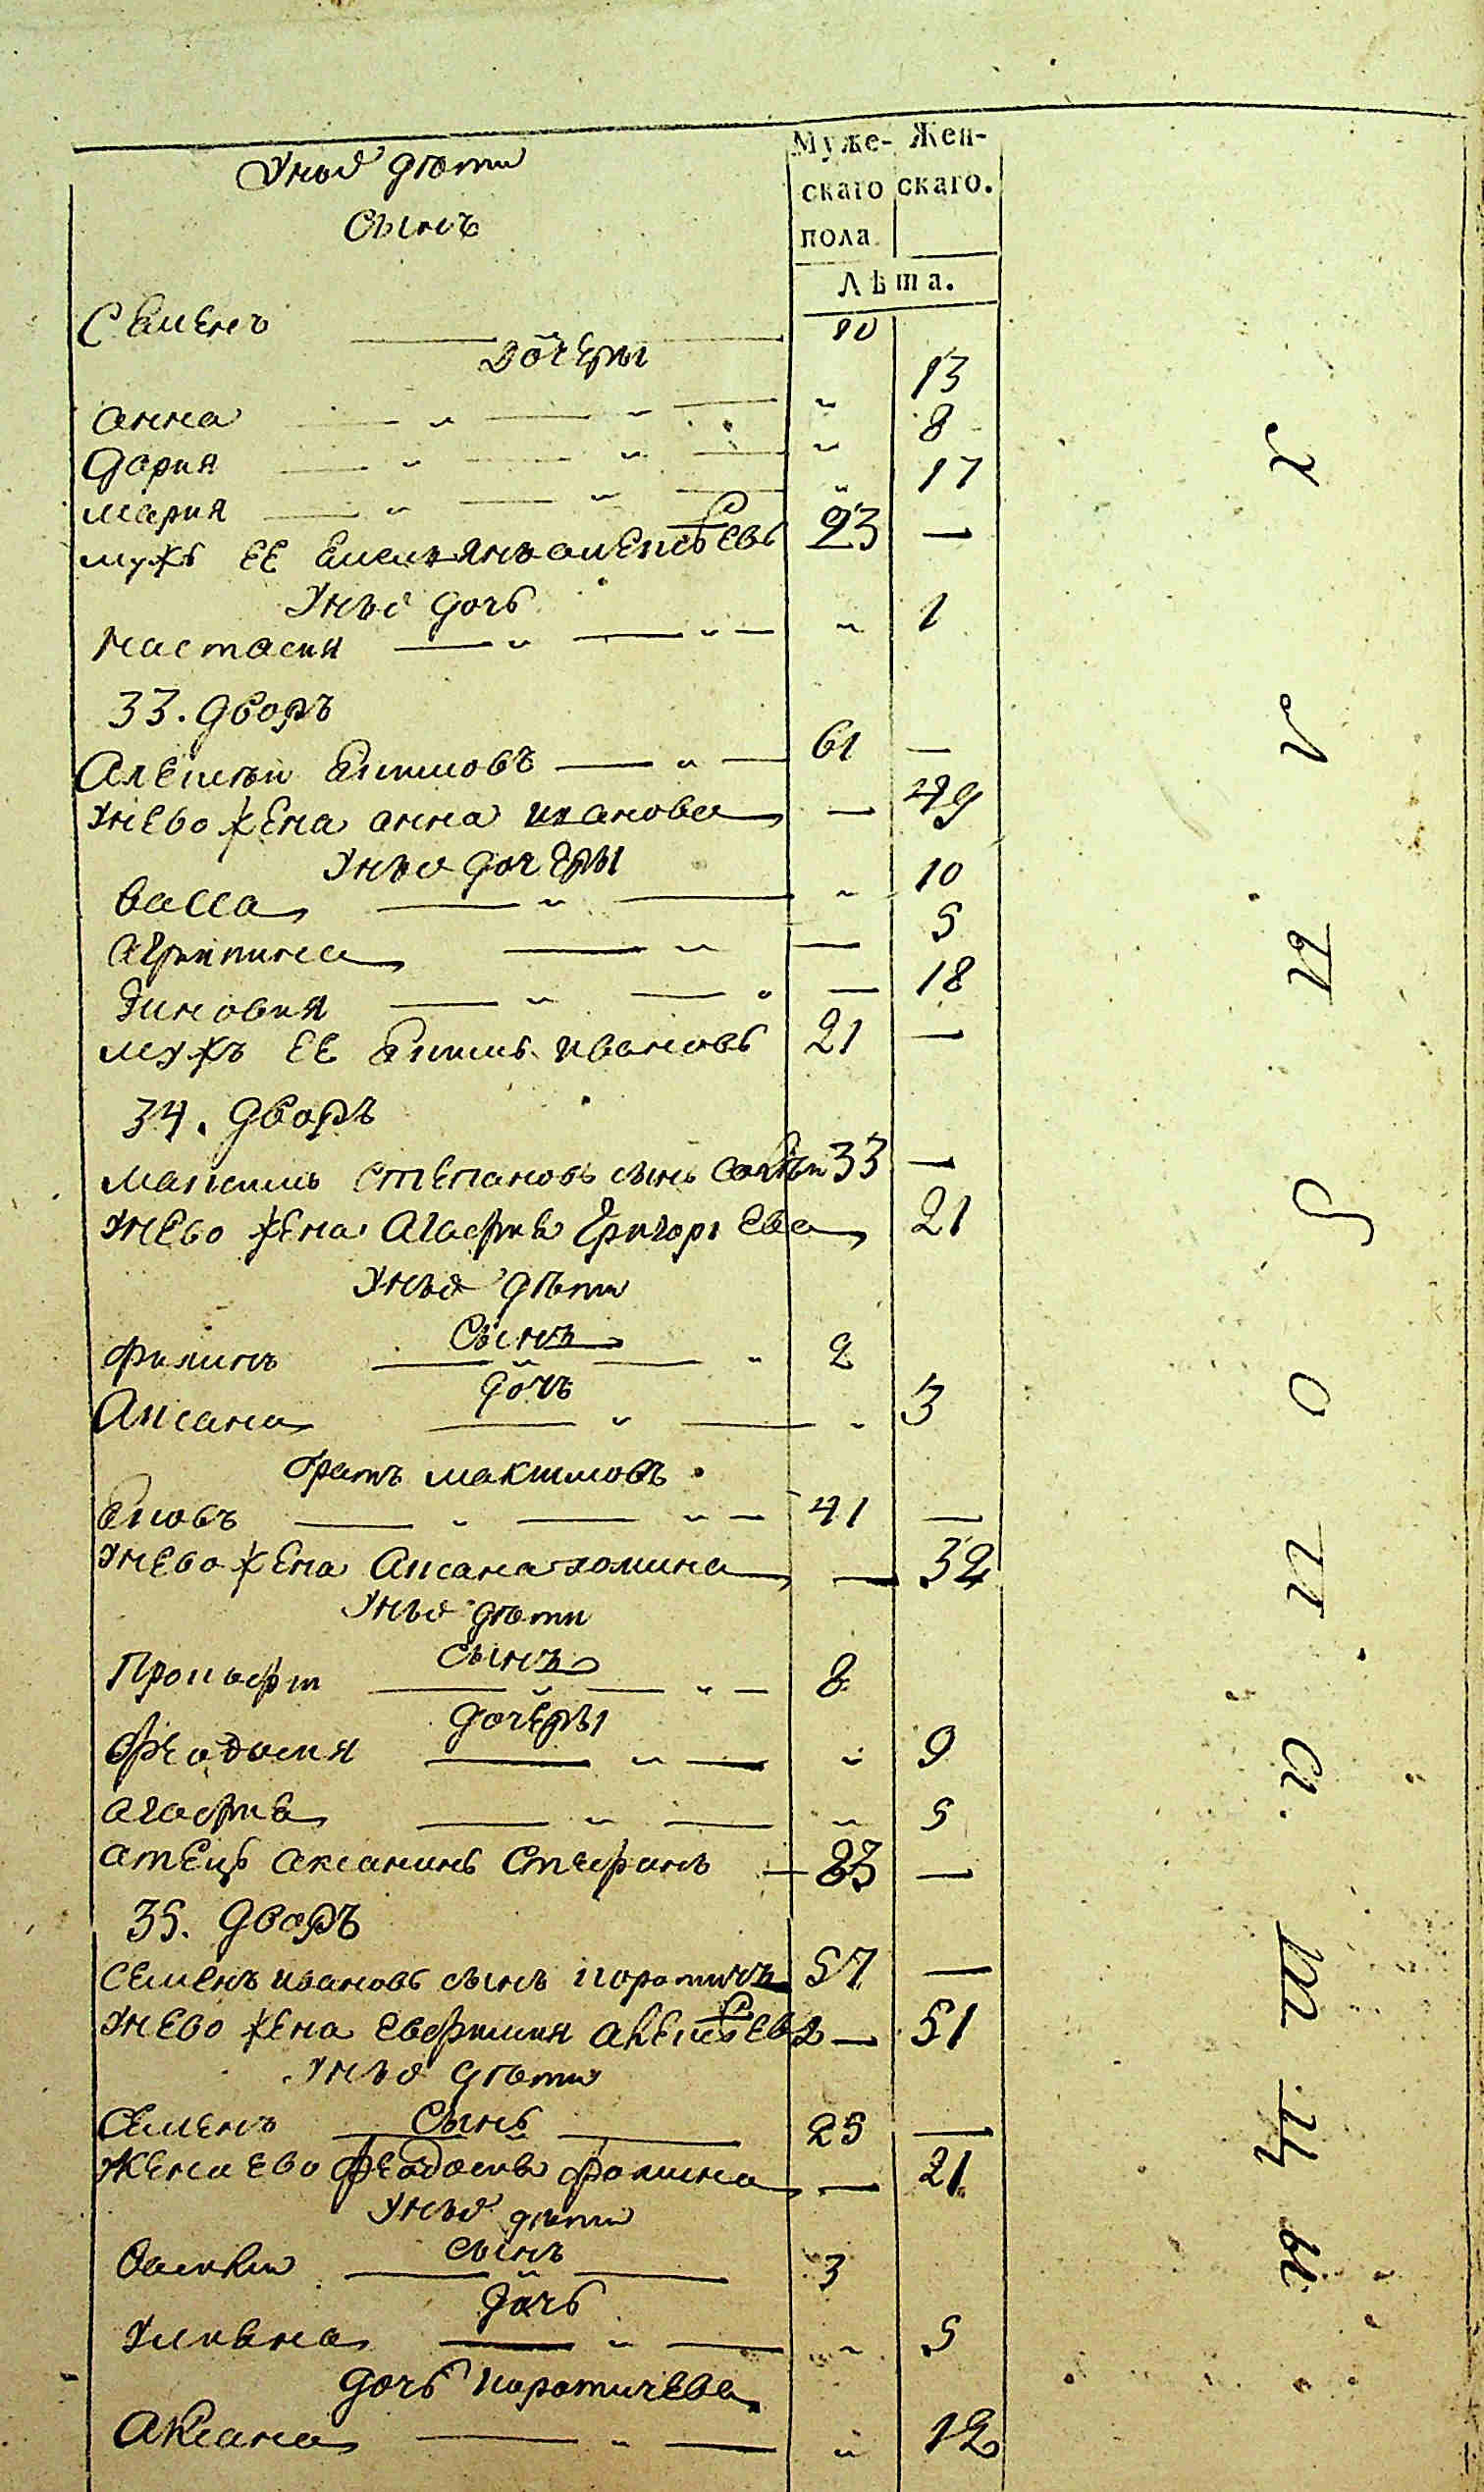 Унихъ дѣти
Муже- Жен-
сынъ
скаго скаго.
пола
Лѣта.
Семенъ 10
Дочери
анна 13
дария 8
мария 17
мужъ ее Емельянъ алексѣевъ 23 —
Унихъ дочь
настасия 1
33. дворъ
Алексѣи Екимовъ 61 —
Унево жена анна иванова — 49
Унихъ дочеры
васса 10
агрипина — 5
Зиновия — 18
мужъ ее Екимъ ивановъ 21 —
34. дворъ
максимъ степановъ сынъ 33 —
Унево жена Агафия григориева 21
Унихъ дѣти
сынъ
филипъ 2
дочь
Аксана 3
братъ максимовъ
Яковъ 41 —
Унево жена Аксана хомина — 32
Унихъ дѣти
сынъ
Прокофи 8
дочеры
феодосия 9
агафия 5
атецъ аксанинъ стефанъ 83 —
35. дворъ
семенъ ивановъ сынъ коротичъ 57 —
Унево жена евфимия алексѣева — 51
Унихъ дѣти
Семенъ сынъ 25 —
жена ево феодосия фомина — 21
Унихъ дѣти
сынъ
василии 3
дочь
Улияна 5
дочь коротичева
Аксана 12